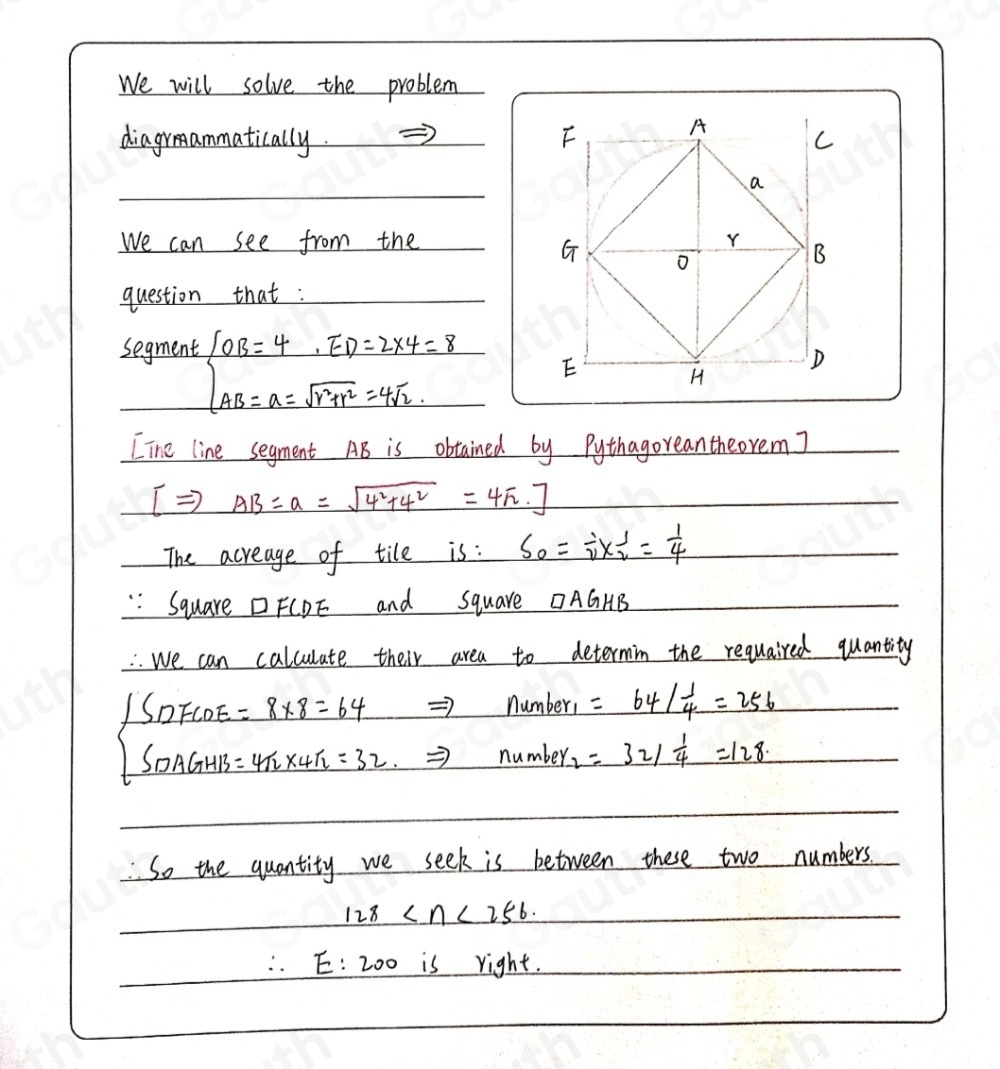 We will solve the problem
diagrmammatically. ⇒
We can see from the
question that :
segment { OB = 4 , ED = 2×4 = 8
AB = a = √r²+r² = 4√2.
F A C
a
G O r B
E H D
[The line segment AB is obtained by Pythagorean theorem]
[⇒ AB = a = √4²+4² = 4√2.]
The acreage of tile is: S₀ = ½×½ = ¼
∵ Square □FCDE and square □AGHB
∴ We can calculate their area to determin the requaired quantity
{ S□FCDE = 8×8 = 64 ⇒ Number₁ = 64/¼ = 256
S□AGHB = 4√2×4√2 = 32. ⇒ number₂ = 32/¼ = 128.
∴ So the quantity we seek is between these two numbers.
128 < n < 256.
∴ E: 200 is right.
Gauth